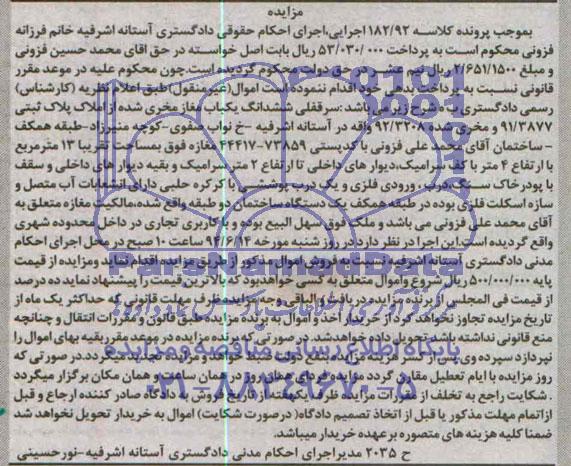 مزایده
بموجب پرونده کلاسه ۱۸۲/۹۲ اجرایی،اجرای احکام حقوقی دادگستری آستانه اشرفیه خانم فرزانه
فزونی محکوم است به پرداخت ۵۳/۰۳۰/۰۰۰ ریال بابت اصل خواسته در حق اقای محمد حسین فزونی
و مبلغ ۲/۶۵۱/۱۵۰۰ ریال نیم عشر در حق دولت محکوم گردیده است.چون محکوم علیه در موعد مقرر
قانونی نسبت به پرداخت بدهی خود اقدام ننموده است اموال(غیرمنقول)طبق اعلام نظریه (کارشناس)
رسمی دادگستری به شرح زیر می باشد:سرقفلی ششدانگ یکباب مغازه مخری شده از املاک پلاک ثبتی
۹۱/۳۸۷۷ و مخری شده ۹۲/۳۲۰۸ واقع در آستانه اشرفیه -خ نواب صفوی-کوچه منبرزاد-طبقه همکف
- ساختمان آقای محمد علی فزونی با کدپستی ۷۳۸۵۹-۴۴۴۱۷ مغازه فوق بمساحت تقریبا ۱۳ مترمربع
با ارتفاع ۴ متر با کف سرامیک،دیوار های داخلی تا ارتفاع ۲ متر سرامیک و بقیه دیوار های داخلی و سقف
با پودرخاک سنگ،درب ورودی فلزی و یک درب پوششی با کرکره حلبی دارای انشعابات آب متصل و
سازه اسکلت فلزی بوده در طبقه همکف یک دستگاه ساختمان دو طبقه واقع شده،مالکیت مغازه متعلق به
آقای محمد علی فزونی می باشد و ملک فوق سهل البیع بوده و با کاربری تجاری در داخل محدوده شهری
واقع گردیده است.این اجرا در نظر دارد در روز شنبه مورخه ۹۴/۶/۱۴ ساعت ۱۰ صبح در محل اجرای احکام
مدنی دادگستری آستانه اشرفیه نسبت به فروش اموال مذکور از طریق مزایده اقدام نماید ومزایده از قیمت
پایه ۵۰۰/۰۰۰/۰۰۰ ریال شروع واموال متعلق به کسی خواهدبود که بالاترین قیمت را پیشنهاد نماید ده درصد
از قیمت فی المجلس از برنده مزایده دریافت و الباقی وجه مزایده ظرف مهلت قانونی که حداکثر یک ماه از
تاریخ مزایده تجاوز نخواهد کرد از خریدار اخذ و اموال به برنده مزایده طبق قانون و مقررات انتقال و چنانچه
منع قانونی نداشته باشد تحویل داده خواهدشد. در صورتی که برنده مزایده در موعد مقرربقیه بهای اموال را
نپردازد سپرده وی پس از کسر هزینه مزایده بنفع دولت ضبط خواهدشد و مزایده تجدید میگردد.در صورتی که
روز مزایده با ایام تعطیل مقارن گردد مزایده فردای همان روز در همان ساعت و همان مکان برگزار میگردد
. شکایت راجع به تخلف از مقررات مزایده ظرف یکهفته از تاریخ فروش به دادگاه صادر کننده ارجاع و قبل
ازاتمام مهلت مذکور یا قبل از اتخاذ تصمیم دادگاه( درصورت شکایت) اموال به خریدار تحویل نخواهد شد
ضمنا کلیه هزینه های متصوره بر عهده خریدار میباشد.
ح ۲۰۳۵ مدیراجرای احکام مدنی دادگستری آستانه اشرفیه-نورحسینی
ParsNamadData
پایگاه اطلاع رسانی مناقصه و مزایده
۰۲۱-۸۸۳۴۹۶۷۰-۵